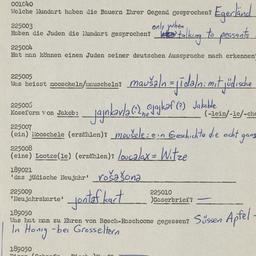 001040
Welche Mundart haben die Bauern Ihrer Gegend gesprochen? Egerländ
225003 only when
Haben die Juden die Mundart gesprochen? talking to peasants
225004
Hat man können einen Juden seiner deutschen Aussprache nach erkennen
225005
Was heisst nooscheln/muuscheln? maušaln = jidaln: mit jüdische
225006
Koseform von Jakob: (-lein/-le/-che
225007
(ein) Moeschele (erzählen): maušele: ein Geschichte die echt ganz
225008
(eine) Lootze(le) (erzählen): Witze
189021
'das jüdische Neujahr' rošašona
225009 225010
'Neujahrskarte' jontefkart )Goserbrief: —
189050
Was hat man zu Ehren von Rosch-Haschoone gegessen? Süssen Apfel -
In Honig - bei Grosseltern
189030